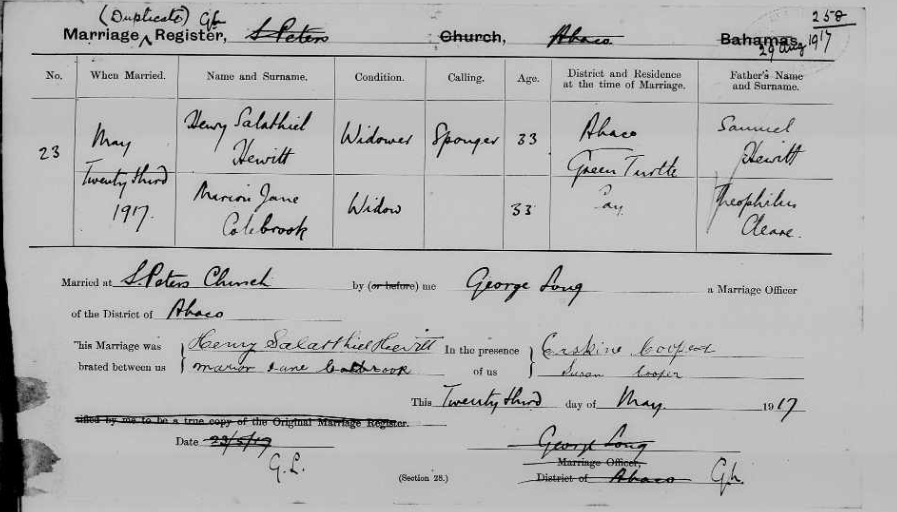 (Duplicate) G.L. 258
Marriage ^ Register, S. Peters Church, Abaco Bahamas
29 Aug 1917
No. When Married. Name and Surname. Condition. Calling. Age. District and Residence at the time of Marriage. Father's Name and Surname.
23 May Twenty third 1917. Henry Salathiel Hewitt Widower Sponger 33 Abaco Green Turtle Cay Samuel Hewitt
Marion Jane Colebrook Widow 33 Theophilus Cleare.
Married at S. Peters Church by (or before) me George Long a Marriage Officer
of the District of Abaco
his Marriage was Henry Salathiel Hewitt In the presence Erskine Cooper
brated between us Marion Jane Colebrook of us Susan Cooper
This Twenty third day of May 1917
tified by me to be a true copy of the Original Marriage Register.
Date 23/5/17 George Long
G.L. Marriage Officer,
(Section 28.) District of Abaco G.L.